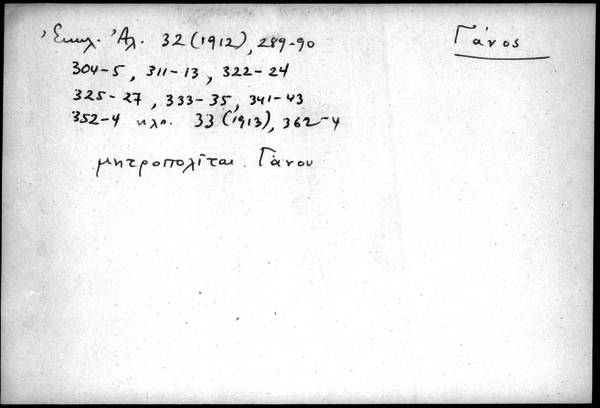 Γάνος
Ἐκκλ. Ἀλ. 32 (1912), 289-90
304-5, 311-13, 322-24
325-27, 333-35, 341-43
352-4 κλπ. 33 (1913), 362-4
μητροπολίται Γάνου